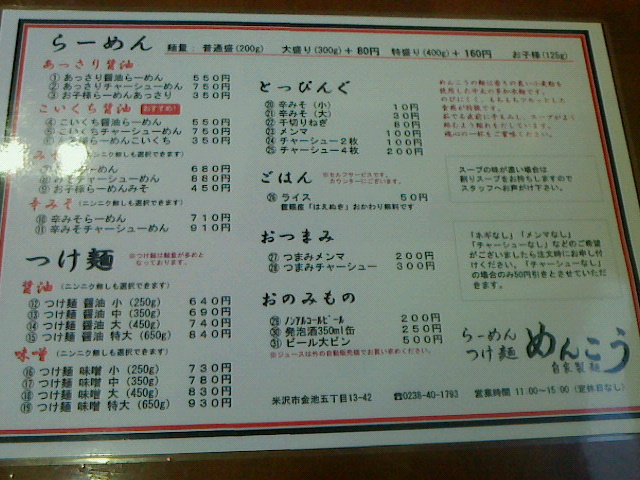 らーめん 麺量: 普通盛(200g) 大盛り(300g)+80円 特盛り(400g)+160円 お子様(125g)
あっさり醤油
① あっさり醤油らーめん 550円
② あっさりチャーシューめん 750円
③ お子様らーめんあっさり 350円
こいくち醤油 おすすめ!
④ こいくち醤油らーめん 550円
⑤ こいくちチャーシューめん 750円
お子様らーめんこいくち 350円
みそ (ニンニク無しも選択できます)
らーめん 680円
みそチャーシューめん 880円
⑨ お子様らーめんみそ 450円
辛みそ (ニンニク無しも選択できます)
⑩ 辛みそらーめん 710円
⑪ 辛みそチャーシューめん 910円
つけ麺 ※つけ麺は麺量が多めと
なっております。
醤油 (ニンニク無しも選択できます)
⑫ つけ麺 醤油 小 (250g) 640円
⑬ つけ麺 醤油 中 (350g) 690円
⑭ つけ麺 醤油 大 (450g) 740円
⑮ つけ麺 醤油 特大 (650g) 840円
味噌 (ニンニク無しも選択できます)
⑯ つけ麺 味噌 小 (250g) 730円
⑰ つけ麺 味噌 中 (350g) 780円
⑱ つけ麺 味噌 大 (450g) 830円
⑲ つけ麺 味噌 特大 (650g) 930円
とっぴんぐ
⑳ 辛みそ (小) 10円
㉑ 辛みそ (大) 30円
㉒ 千切りねぎ 80円
㉓ メンマ 100円
㉔ チャーシュー2枚 100円
㉕ チャーシュー4枚 200円
ごはん ※セルフサービスです。
カウンターにございます。
㉖ ライス 50円
置賜産「はえぬき」おかわり無料です
おつまみ
㉗ つまみメンマ 200円
㉘ つまみチャーシュー 300円
おのみもの
㉙ ノンアルコールビール 200円
㉚ 発泡酒350ml缶 250円
㉛ ビール大ビン 500円
※ジュースは外の自動販売機でお買い求めください。
めんこうの麺は香りの良い小麦粉を
使用した中太の多加水麺です。
のびにくく、もちもちツルっとした
食感が特徴です。
スープの味が濃い場合は
割りスープをお持ちしますので
スタッフへお声がけ下さい。
「ネギなし」「メンマなし」
「チャーシューなし」などのご希望
がございましたら注文時にお申し付
けください。「チャーシューなし」
の場合のみ50円引きとさせていただ
きます。
らーめん
つけ麺 めんこう
自家製麺
米沢市金池五丁目13-42 ☎0238-40-1793 営業時間 11:00~15:00 (定休日なし)